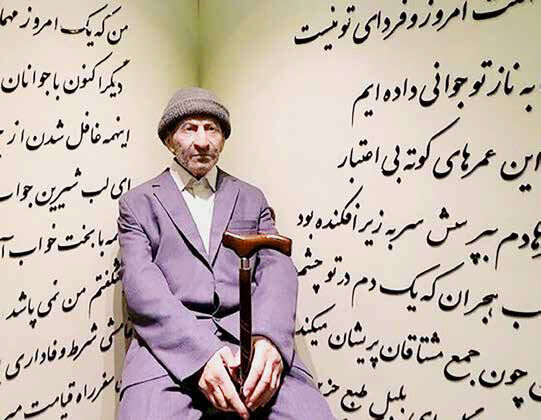 امروز و فردای تو نیست
به ناز تو جوانی داده ایم
این عمرهای کوته بی اعتبار
بپرسش سر به زیر افکنده بود
هجران که یک دم در تو چشم
چون جمع مشتاقان پریشان میکند
بلبل طبع
من که یک امروز مهما
دیگر اکنون با جوانان
اینهمه غافل شدن از
ای لب شیرین جواب
با بخت خواب آ
شگفتم من نمی پاشد
شرط وفاداری
سفر راه قیامت